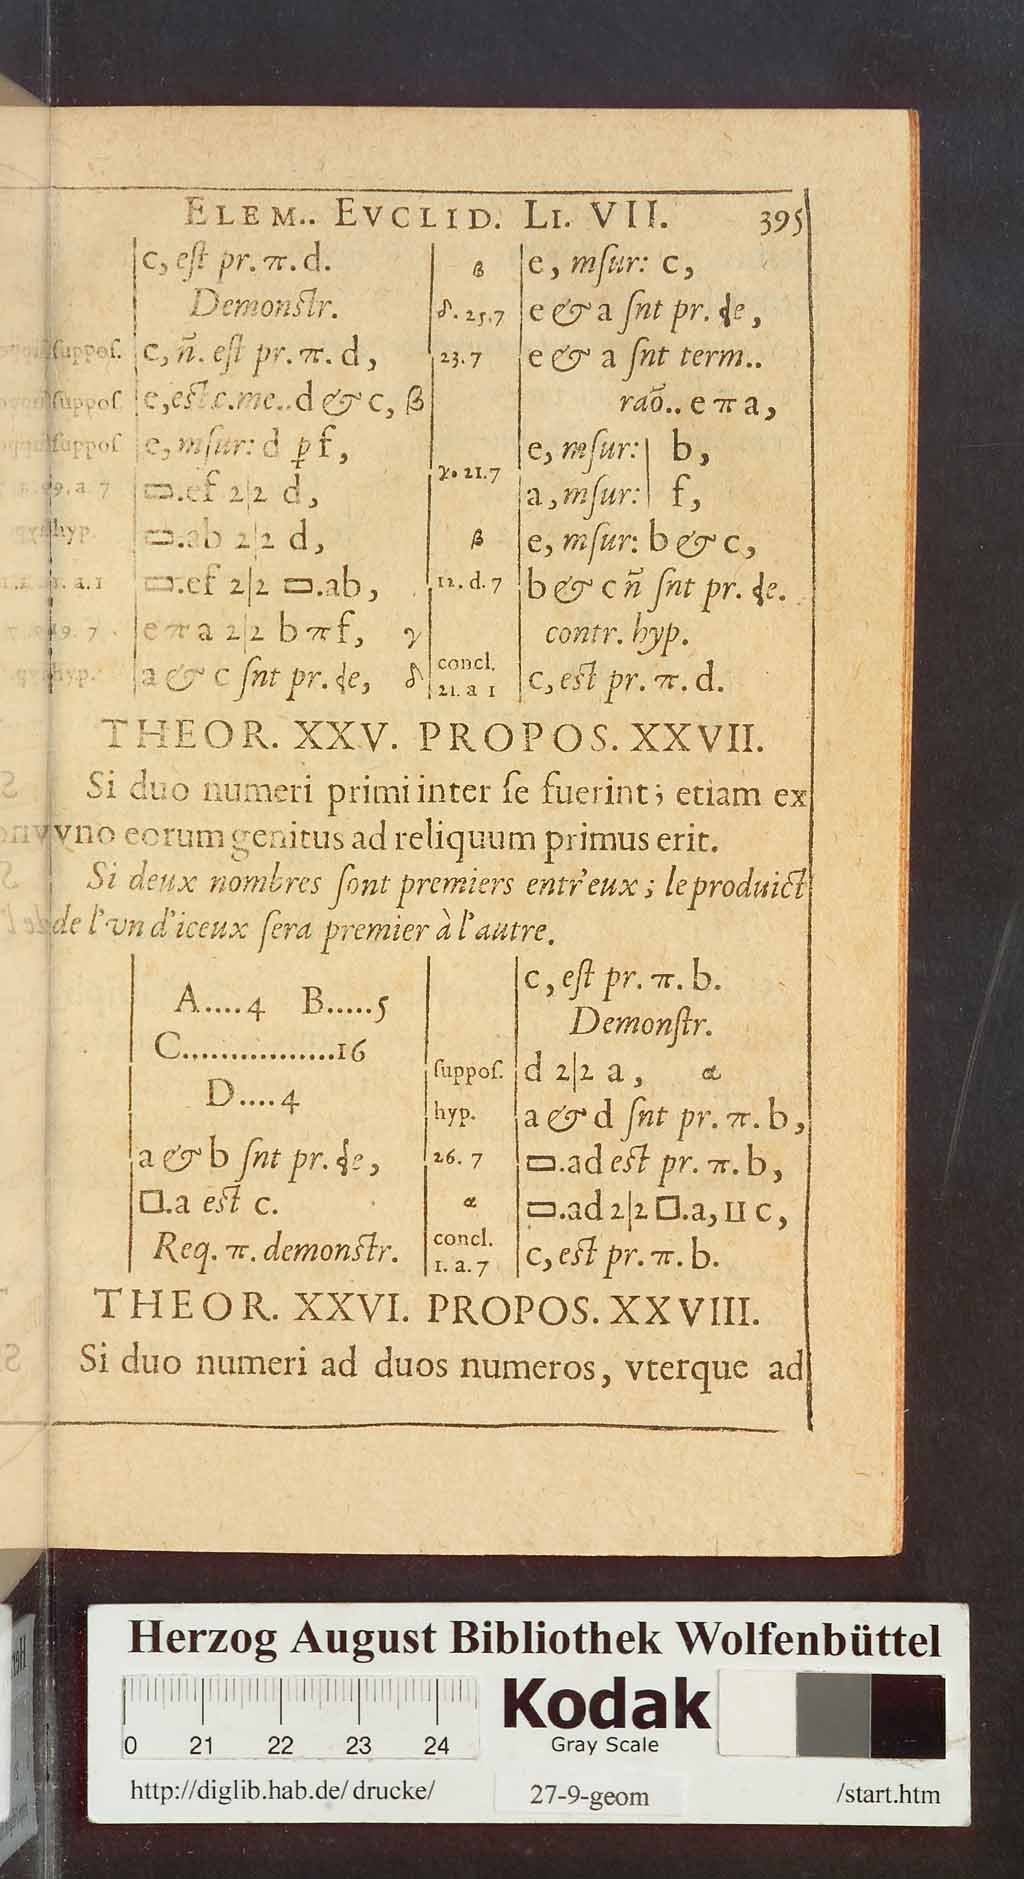 ELEM.. EVCLID. LI. VII. 395
c, est pr. π. d.
Demonstr.
suppos. c, n̄. est pr. π. d,
suppos. e, est c. me.. d & c, β
suppos. e, mesur: d p f,
▭.ef 2|2 d,
hyp. ▭.ab 2|2 d,
1. a. 1 ▭.ef 2|2 ▭.ab,
19. 7 e π a 2|2 b π f, γ
hyp. a & c snt pr. ɖe, δ
β e, msur: c,
δ. 25.7 e & a snt pr. ɖe,
23.7 e & a snt term..
raõ.. e π a,
e, msur: b,
γ. 21.7
a, msur: f,
β e, msur: b & c,
12. d. 7 b & c n̄ snt pr. ɖe.
contr. hyp.
concl.
21. a 1 c, est pr. π. d.
THEOR. XXV. PROPOS. XXVII.
Si duo numeri primi inter se fuerint; etiam ex
vno eorum genitus ad reliquum primus erit.
Si deux nombres sont premiers entr'eux; le produict
de l'vn d'iceux sera premier à l'autre.
A....4 B.....5
C................16
D....4
a & b snt pr. ɖe,
□.a est c.
Req. π. demonstr.
c, est pr. π. b.
Demonstr.
suppos. d 2|2 a, α
hyp. a & d snt pr. π. b,
26. 7 ▭.ad est pr. π. b,
α ▭.ad 2|2 □.a, II c,
concl.
1. a. 7 c, est pr. π. b.
THEOR. XXVI. PROPOS. XXVIII.
Si duo numeri ad duos numeros, vterque ad
Herzog August Bibliothek Wolfenbüttel
Kodak
Gray Scale
0 21 22 23 24
http://diglib.hab.de/ drucke/ 27-9-geom /start.htm